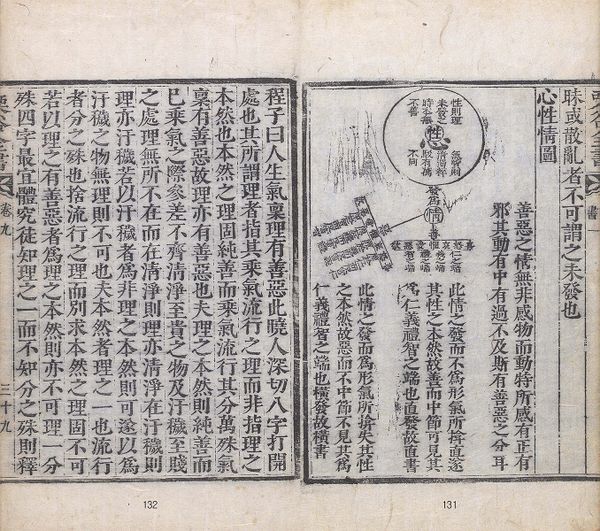 書一
眛或散亂者不可謂之未發也
心性情圖
性則理
未發之
時本無
不善
性
清濁粹
駁有萬
不同
發爲
情
善
善惡之情無非感物而動特所感有正有
邪其動有中有過不及斯有善惡之分耳
此情之發而不爲形氣所揜直遂
其性之本然故善而中節可見其
爲仁義禮智之端也直發故直書
此情之發而爲形氣所揜失其性
之本然故惡而不中節不見其爲
仁義禮智之端也橫發故橫書
131
程子曰人生氣稟理有善惡此曉人深切八字打開
處也其所謂理者指其乘氣流行之理而非指理之
本然也本然之理固純善而乘氣流行其分萬殊氣
稟有善惡故理亦有善惡也夫理之本然則純善而
已乘氣之際參差不齊清淨至貴之物及汙穢至賤
之處理無所不在而在清淨則理亦清淨在汙穢則
理亦汙穢若以汙穢者爲非理之本然則可遂以爲
汙穢之物無理則不可也夫本然者理之一也流行
者分之殊也捨流行之理而別求本然之理固不可
若以理之有善惡者爲理之本然則亦不可理一分
殊四字最宜體究徒知理之一而不知分之殊則釋
卷九
三十九
132